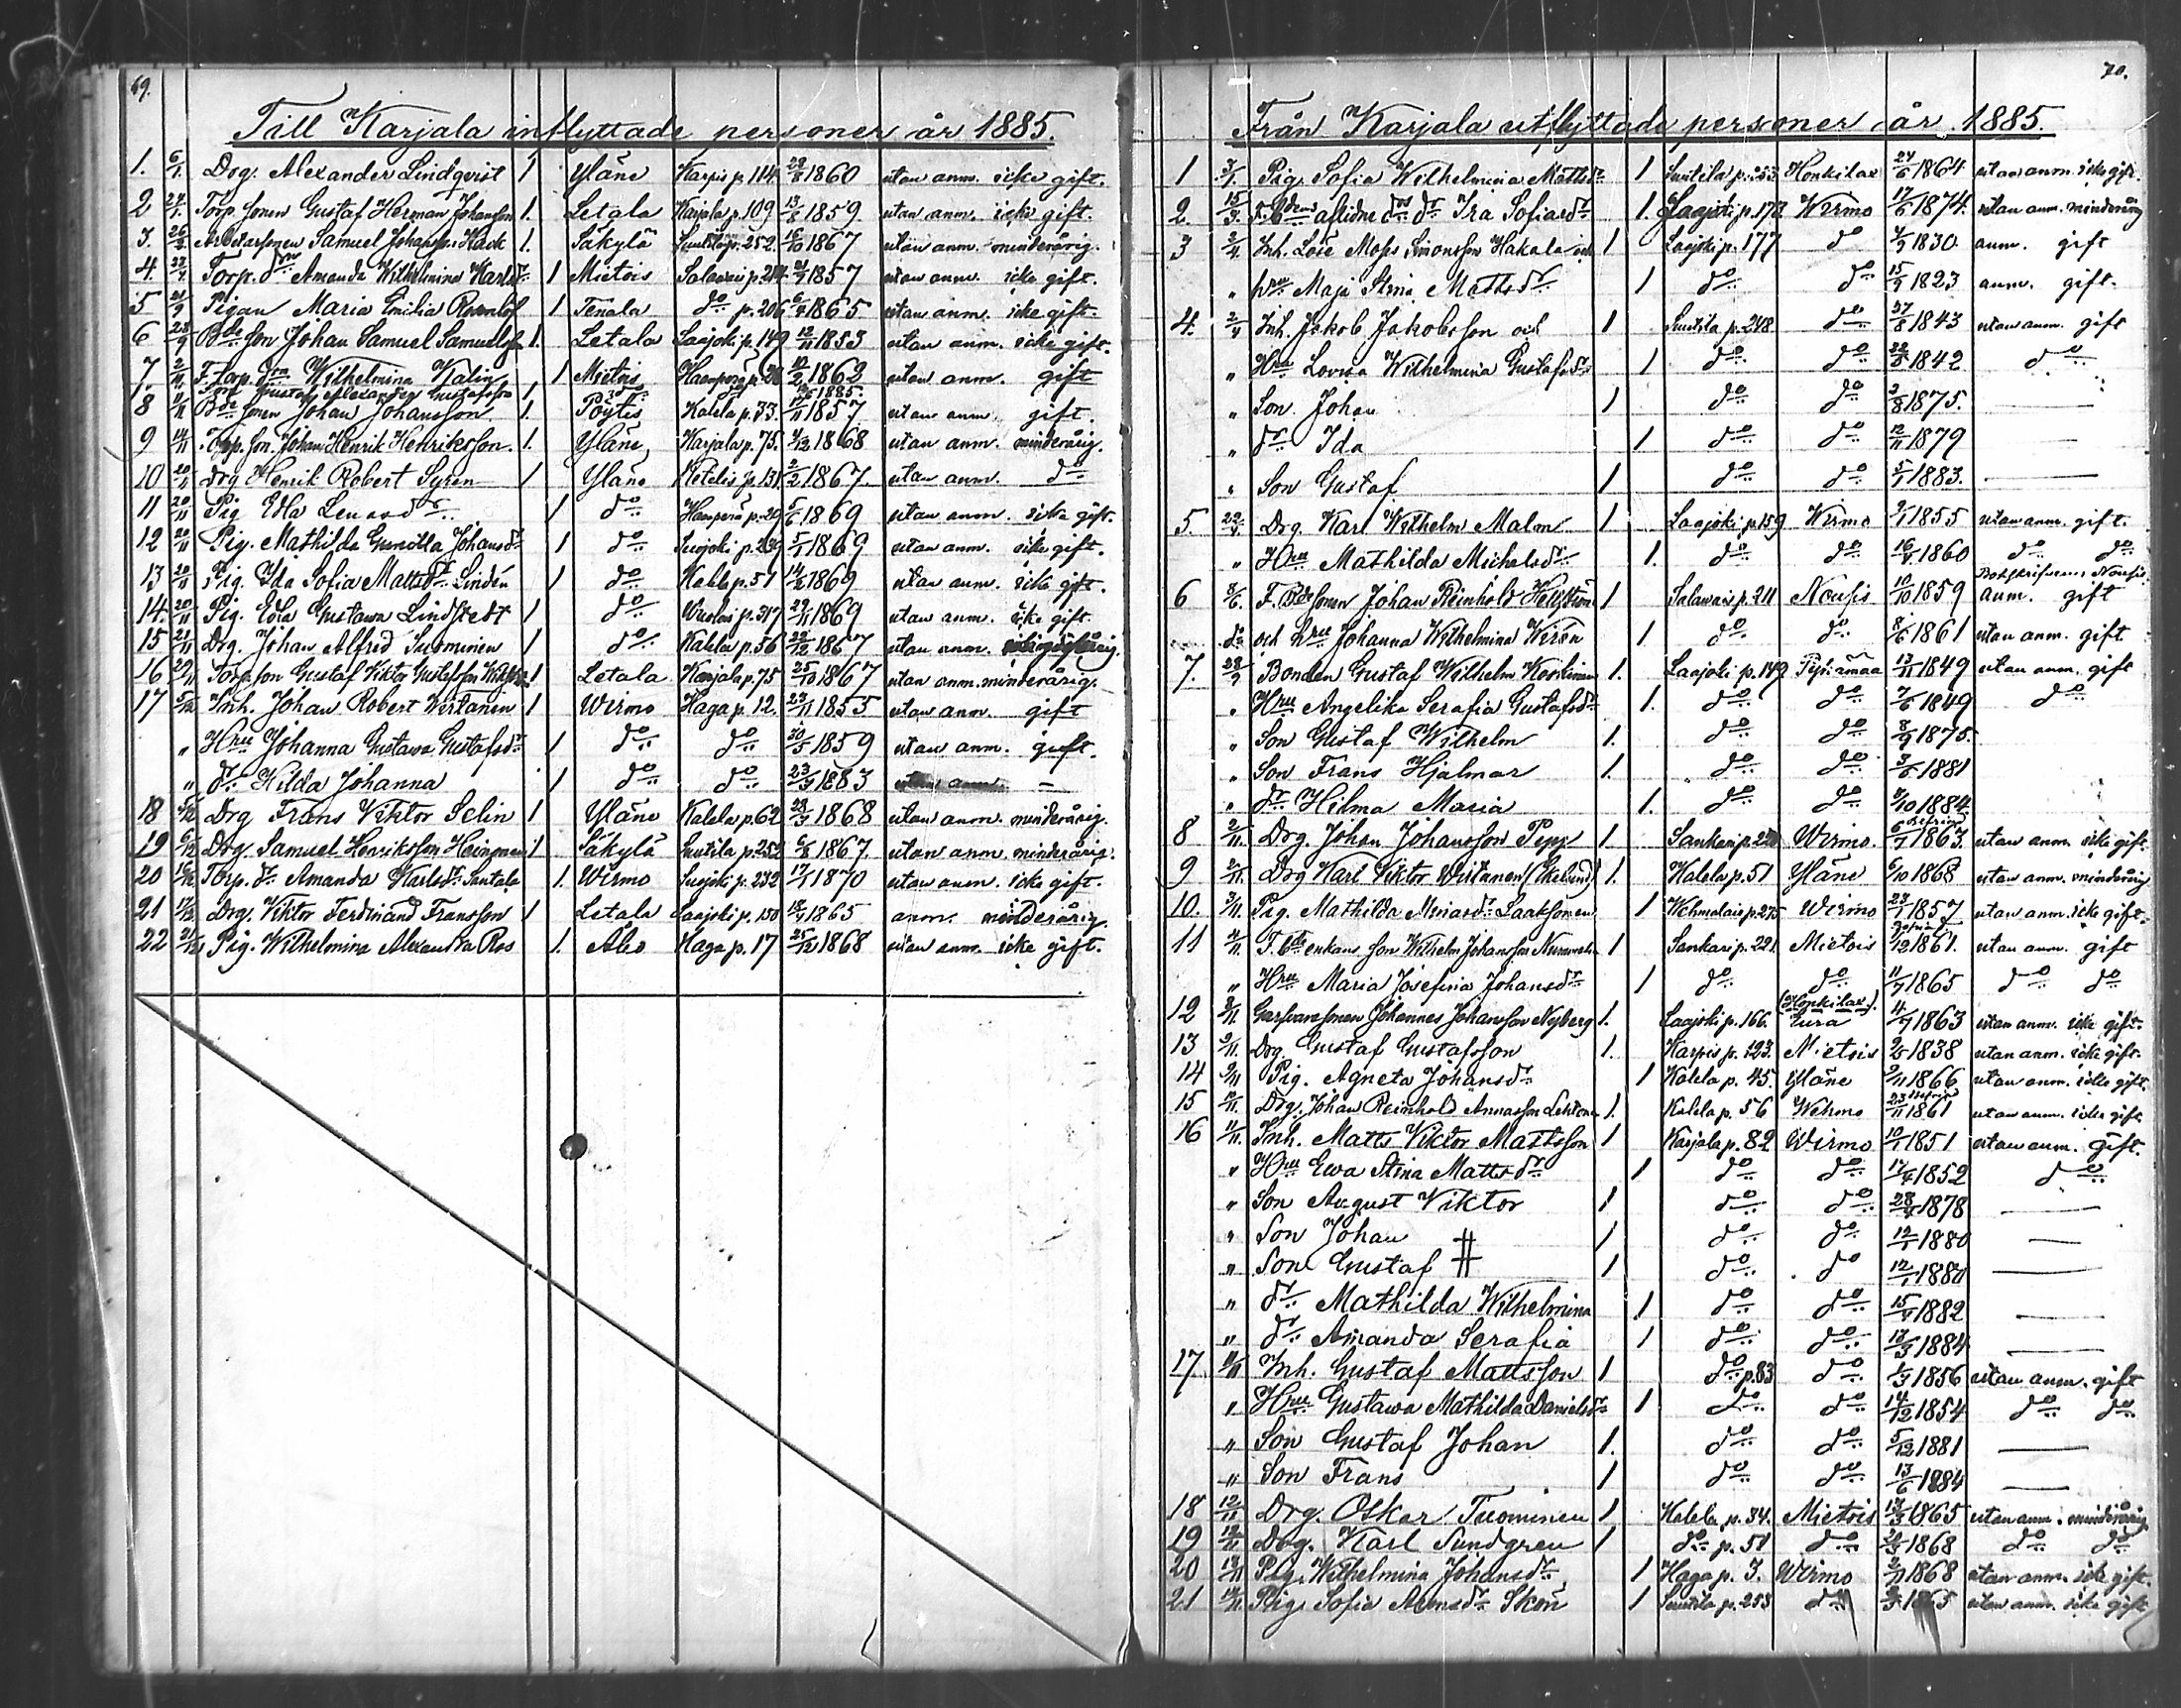 69.
Till Karjala inflyttade personer år 1885.
1. 6/1. Drg. Alexander Lindqvist 1 Yläne Karpis p. 114. 1860 utan anm. icke gift.
2 Torp. sonen Gustaf Herman Johansson 1. Letala Karjala p. 109 13/8 1859. utan anm. icke gift.
3. 26/2 Arbetarsonen Samuel Johansson Kack 1. Säkylä Suutila p. 252. 16/10 1867 utan anm. minderårig.
4. Torp. dn Amanda Wilhelmina Karlsdr 1 Mietois Salavais p. 214 1857 utan anm. icke gift.
5 21/9 Pigan Maria Emilia Rosenlöf 1 Tenala do p. 206 1865 utan anm. icke gift.
6 28/9 Bde son Johan Samuel Samuelsson 1. Letala Laajoki p. 149 12/11 1853 utan anm. icke gift.
7 2/11 F. Torp. dra Wilhelmina Kalin 1 Mietois Haanperä p. 1862 utan anm. gift
Gustaf Alexander Gustafsson 1885.
8 11/11 Bde sonen Johan Johansson 1. Pöytis Kalela p. 33. 17/11 1857 utan anm. gift
9 14/11 Torp. son. Johan Henrik Henriksson. 1. Yläne Karjala p. 75. 4/12 1868 utan anm. minderårig.
10 20/11 Drg Henrik Robert Syren 1 Yläne Ketelis p. 131 2/2 1867. utan anm. do
11 20/11 Pig Edla Lenasdr 1 do Haanperä p. 29 5/6 1869 utan anm. icke gift.
12 20/11 Pig. Mathilda Gunilla Johansdr 1 do Suojoki p. 239 5/1 1869 utan anm. icke gift.
13 20/11 Pig. Ida Sofia Mattsdr Lindén 1 do Kalela p. 51 1869 utan anm. icke gift.
14. 20/11 Pig. Edla Gustava Lindstedt 1 do p. 317 29/11 1869 utan anm. icke gift.
15 21/11 Drg. Johan Alfred Suominen 1 do Kalela p. 56 22/12 1867 utan anm.
16 29/11 Torp. son Gustaf Viktor Gustafsson 1 Letala. Karjala p. 75 25/10 1867 utan anm. minderårig.
17 5/12 Inh. Johan Robert Wirtanen 1 Wirmo Haga p. 12. 23/11 1855 utan anm. gift
" Hru Johanna Gustava Gustafsdr 1 do do 30/5 1859 utan anm. gift.
" dr Hilda Johanna 1 do do 1883 utan anm. –
18 5/12 Drg Frans Viktor Selin 1 Yläne Kalela p. 62 1868 utan anm. minderårig.
19 6/12 Drg. Samuel Henriksson Heinonen 1 Säkylä Suutila p. 252 6/8 1867. utan anm. minderårig.
20 Torp. dr Amanda Karlsdr Santala 1. Wirmo Suojoki p. 232 17/1 1870 utan anm. icke gift.
21 17/12 Drg. Viktor Ferdinand Fransson 1 Letala Laajoki p. 150 1865 anm. minderårig.
22 21/12 Pig. Wilhelmina Alexandra Ros 1. Åbo Haga p. 17 25/12 1868 utan anm. icke gift.
70.
Från Karjala utflyttade personer år 1885.
1 3/1. Pig. Sofia Wilhelmina Mattsdr 1 Suutila p. 253 Honkilax 24/6 1864 utan anm. icke gift.
2. 15/3 aflidne dr Ira Sofiasdr 1. Laajoki p. 173 Wirmo 17/6 1874. utan anm. minderårig
3 2/4 Inh. Löse Moses Simonsson Hakala och 1 Laajoki p. 177 do 4/9 1830. anm. gift
" hru Maja Stina Mattsdr 1 do do 15/9 1823 anm. gift.
4. 2/4 Inh. Jakob Jakobsson och 1 Suutila p. 248 do 1843 utan anm. gift
" Hru Lovisa Wilhelmina Gustafsdr 1 do do 1842 do
" Son Johan 1 do do 2/8 1875. —
" dr Ida 1 do do 12/11 1879 —
" Son Gustaf 1 do do 5/1 1883. —
5. 22/4 Drg. Karl Wilhelm Malm 1 Laajoki p. 159 Wirmo 1855 utan anm. gift.
" Hru Mathilda Michelsdr 1. do do 1860 do do
6 8/6. F. Bde sonen Johan Reinhold Hellström 1 Salavais p. 211 Nousis 10/10 1859 anm. gift
do och hru Johanna Wilhelmina Wirén 1 do do 8/6 1861 utan anm. gift
7. 28/9 Bonden Gustaf Wilhelm Koskinen 1. Laajoki p. 149 13/11 1849 utan anm. gift
" Hru Angelika Serafia Gustafsdr 1. do do 7/6 1849 do
" Son Gustaf Wilhelm 1. do do 8/9 1875.
" Son Frans Hjalmar 1. do do 3/6 1881
" dr Hilma Maria 1. do do 1884
8 2/11. Drg. Johan Johansson Pepp 1. Sankari p. 220 Wirmo 6/7 1863. utan anm. icke gift.
9 2/11. Drg Karl Viktor Wirtanen (Ekelund) 1. Kalela p. 51 Yläne 6/10 1868 utan anm. minderårig
10. 3/11. Pig. Mathilda Laaksonen 1 Wehmalais p. 275 Wirmo 23/1 1857 utan anm. icke gift.
11 4/11. F. Bde enkans son Wilhelm Johansson Nummelin 1 Sankari p. 221 Mietois 1861. utan anm. gift
" Hru Maria Josefina Johansdr 1 do do 11/7 1865 do do
12 8/11. Garfvaresonen Johannes Johansson Nyberg 1. Laajoki p. 166. (Honkilax) Eura 4/7 1863 utan anm. icke gift.
13 9/11. Drg. Gustaf Gustafsson 1. Karpis p. 123. Mietois 1838 utan anm. icke gift.
14 9/11 Pig. Agneta Johansdr 1 Kalela p. 45. Yläne 9/11 1866 utan anm. icke gift.
15 10/11. Drg. Johan Reinhold Annasson Lehtonen 1. Kalela p. 56 Wehmo 23/11 1861 utan anm. icke gift.
16 11/11. Inh. Matts Viktor Mattsson 1 Karjala p. 82 Wirmo 10/1 1851 utan anm. gift.
" Hru Ewa Stina Mattsdr 1 do do 17/4 1852 do
" Son August Viktor 1 do do 1878 —
" Son Johan 1 do do 12/1 1880 —
" Son Gustaf 1 do do 12/1 1880 —
" dr Mathilda Wilhelmina 1 do do 1882 —
" dr Amanda Serafia 1 do do 13/3 1884 —
17. 11/11 Inh. Gustaf Mattsson 1 do p. 83 do 1856 utan anm. gift
" Hru Gustawa Mathilda Danielsdr 1 do do 14/12 1854 do do
" Son Gustaf Johan 1. do do 5/12 1881 —
" Son Frans 1 do do 13/6 1884 —
18 12/11 Drg. Oskar Tuominen 1 Kalela p. 34. Mietois 13/3 1865 utan anm. minderårig
19 12/11 Drg. Karl Sundgren 1 do p. 51 do 1868 do do
20 13/11 Pig. Wilhelmina Johansdr 1 Haga p. 3. Wirmo 1868 utan anm. icke gift.
21 14/11 Pig. Sofia Adamsdr Skön 1 Suutila p. 253 do 1865 utan anm. icke gift